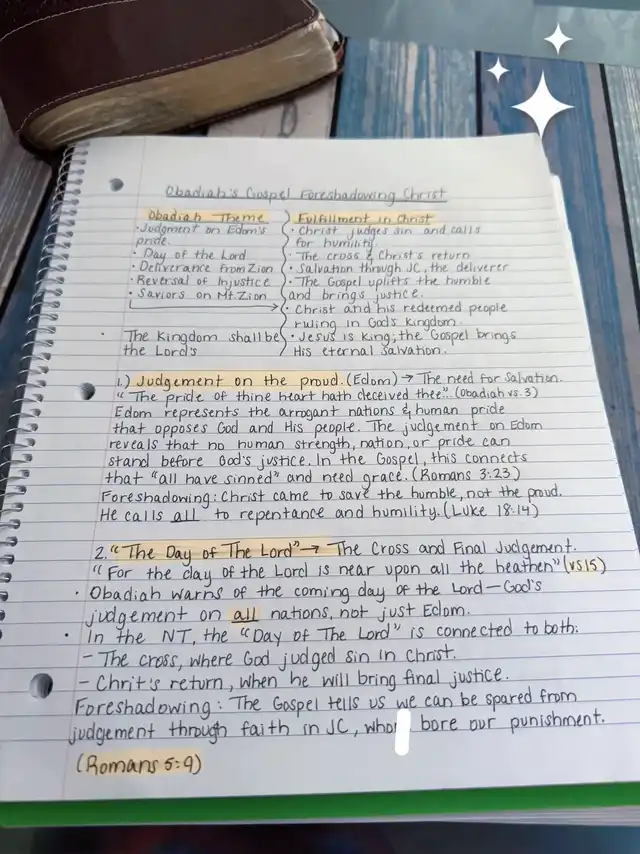 Obadiah's Gospel Foreshadowing Christ
Obadiah Theme
· Judgment on Edom's
pride.
· Day of the Lord
· Deliverance from Zion
· Reversal of Injustice
· Saviors on Mt. Zion
· The Kingdom shall be
the Lord's
Fulfillment in Christ
· Christ judges sin and calls
for humility.
· The cross & Christ's return
· Salvation through JC, the deliverer
· The Gospel uplifts the humble
and brings justice.
· Christ and his redeemed people
ruling in God's kingdom.
· Jesus is King; the Gospel brings
His eternal salvation.
1.) Judgement on the proud. (Edom) → The need for Salvation.
"The pride of thine heart hath deceived thee". (Obadiah vs. 3)
Edom represents the arrogant nations & human pride
that opposes God and His people. The judgement on Edom
reveals that no human strength, nation, or pride can
stand before God's justice. In the Gospel, this connects
that "all have sinned" and need grace. (Romans 3:23)
Foreshadowing: Christ came to save the humble, not the proud.
He calls all to repentance and humility. (Luke 18:14)
2. "The Day of The Lord" → The Cross and Final Judgement.
"For the day of the Lord is near upon all the heathen" (vs 15)
· Obadiah warns of the coming day of the Lord — God's
judgement on all nations, not just Edom.
· In the NT, the "Day of The Lord" is connected to both:
- The cross, where God judged sin in Christ.
- Chrit's return, when he will bring final justice.
Foreshadowing: The Gospel tells us we can be spared from
judgement through faith in JC, who bore our punishment.
(Romans 5:9)